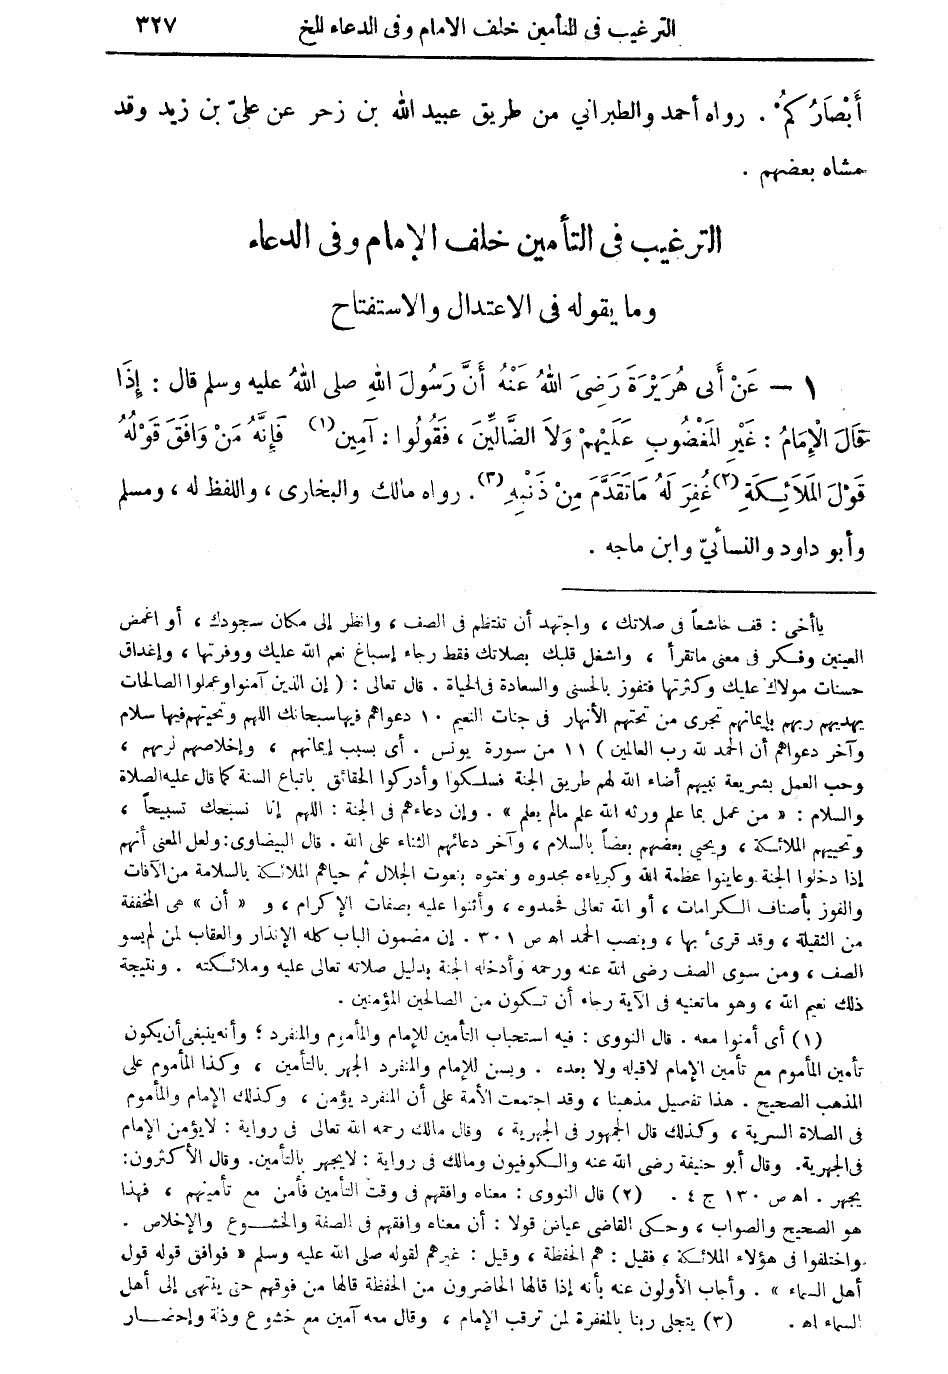 الترغيب فى التأمين خلف الامام وفى الدعاء للخ ٣٢٧
أَبْصَارُكُمْ . رواه أحمد والطبراني من طريق عبيد الله بن زحر عن علىّ بن زيد وقد
مشاه بعضهم .
الترغيب فى التأمين خلف الإمام وفى الدعاء
وما يقوله فى الاعتدال والاستفتاح
١ — عَنْ أَبى هُرَيْرَةَ رَضِىَ اللهُ عَنْهُ أَنَّ رَسُولَ اللهِ صلى اللهُ عليه وسلم قال : إِذَا
قَالَ الْإِمَامُ : غَيْرِ الْمَغْضُوبِ عَلَيْهِمْ وَلَا الضَّالِّينَ ، فَقُولُوا : آمِين (١) فَإِنَّهُ مَنْ وَافَقَ قَوْلُهُ
قَوْلَ الْمَلَائِكَةِ (٢) غُفِرَ لَهُ مَا تَقَدَّمَ مِنْ ذَنْبِهِ (٣) . رواه مالك والبخارى ، واللفظ له ، ومسلم
وأبو داود والنسائيّ وابن ماجه .
ياأخى : قف خاشعاً فى صلاتك ، واجتهد أن تنتظم فى الصف ، وانظر إلى مكان سجودك ، أو اغمض
العينين وفكر فى معنى ماتقرأ ، واشغل قلبك بصلاتك فقط رجاء إسباغ نعم الله عليك ووفرتها ، وإغداق
حسنات مولاك عليك وكثرتها فتفوز بالحسنى والسعادة فى الحياة . قال تعالى : ( إن الذين آمنوا وعملوا الصالحات
يهديهم ربهم بإيمانهم تجرى من تحتهم الأنهار فى جنات النعيم ١٠ دعواهم فيها سبحانك اللهم وتحيتهم فيها سلام
وآخر دعواهم أن الحمد لله رب العالمين ) ١١ من سورة يونس . أى بسبب إيمانهم ، وإخلاصهم لربهم ،
وحب العمل بشريعة نبيهم أضاء الله لهم طريق الجنة فسلكوا وأدركوا الحقائق باتباع السنة كما قال عليه الصلاة
والسلام : « من عمل بما علم ورثه الله علم مالم يعلم » . وإن دعاءهم فى الجنة : اللهم إنا نسبحك تسبيحاً ،
وتحييهم الملائكة ، ويحي بعضهم بعضاً بالسلام ، وآخر دعائهم الثناء على الله . قال البيضاوى: ولعل المعنى أنهم
إذا دخلوا الجنة وعاينوا عظمة الله وكبرياءه مجدوه ونعتوه بنعوت الجلال ثم حياهم الملائكة بالسلامة من الآفات
والفوز بأصناف الكرامات ، أو الله تعالى فحمدوه ، وأثنوا عليه بصفات الإكرام ، و « أن » هى المخففة
من الثقيلة ، وقد قرئ بها ، وبنصب الحمد اه ص ٣٠١ . إن مضمون الباب كله الإنذار والعقاب لمن لم يسو
الصف ، ومن سوى الصف رضى الله عنه ورحمه وأدخله الجنة بدليل صلاته تعالى عليه وملائكته . ونتيجة
ذلك نعيم الله ، وهو ماتعنيه فى الآية رجاء أن تكون من الصالحين المؤمنين .
(١) أى أمنوا معه . قال النووى : فيه استحباب التأمين للإمام والمأموم والمنفرد ؛ وأنه ينبغى أن يكون
تأمين المأموم مع تأمين الإمام لاقبله ولا بعده . ويسن للإمام والمنفرد الجهر بالتأمين ، وكذا المأموم على
المذهب الصحيح . هذا تفصيل مذهبنا ، وقد اجتمعت الأمة على أن المنفرد يؤمن ، وكذلك الإمام والمأموم
فى الصلاة السرية ، وكذلك قال الجمهور فى الجهرية ، وقال مالك رحمه الله تعالى فى رواية : لايؤمن الإمام
فى الجهرية. وقال أبو حنيفة رضى الله عنه والكوفيون ومالك فى رواية : لايجهر بالتأمين. وقال الأكثرون:
يجهر . اه ص ١٣٠ ج ٤ . (٢) قال النووى : معناه وافقهم فى وقت التأمين فأمن مع تأمينهم ، فهذا
هو الصحيح والصواب ، وحكى القاضى عياض قولا : أن معناه وافقهم فى الصفة والخشوع والإخلاص .
واختلفوا فى هؤلاء الملائكة ، فقيل : هم الحفظة ، وقيل : غيرهم لقوله صلى الله عليه وسلم « فوافق قوله قول
أهل السماء » . وأجاب الأولون عنه بأنه إذا قالها الحاضرون من الحفظة قالها من فوقهم حتى ينتهى إلى أهل
السماء اه . (٣) يتجلى ربنا بالمغفرة لمن ترقب الإمام ، وقال معه آمين مع خشوع وذلة وإحضار